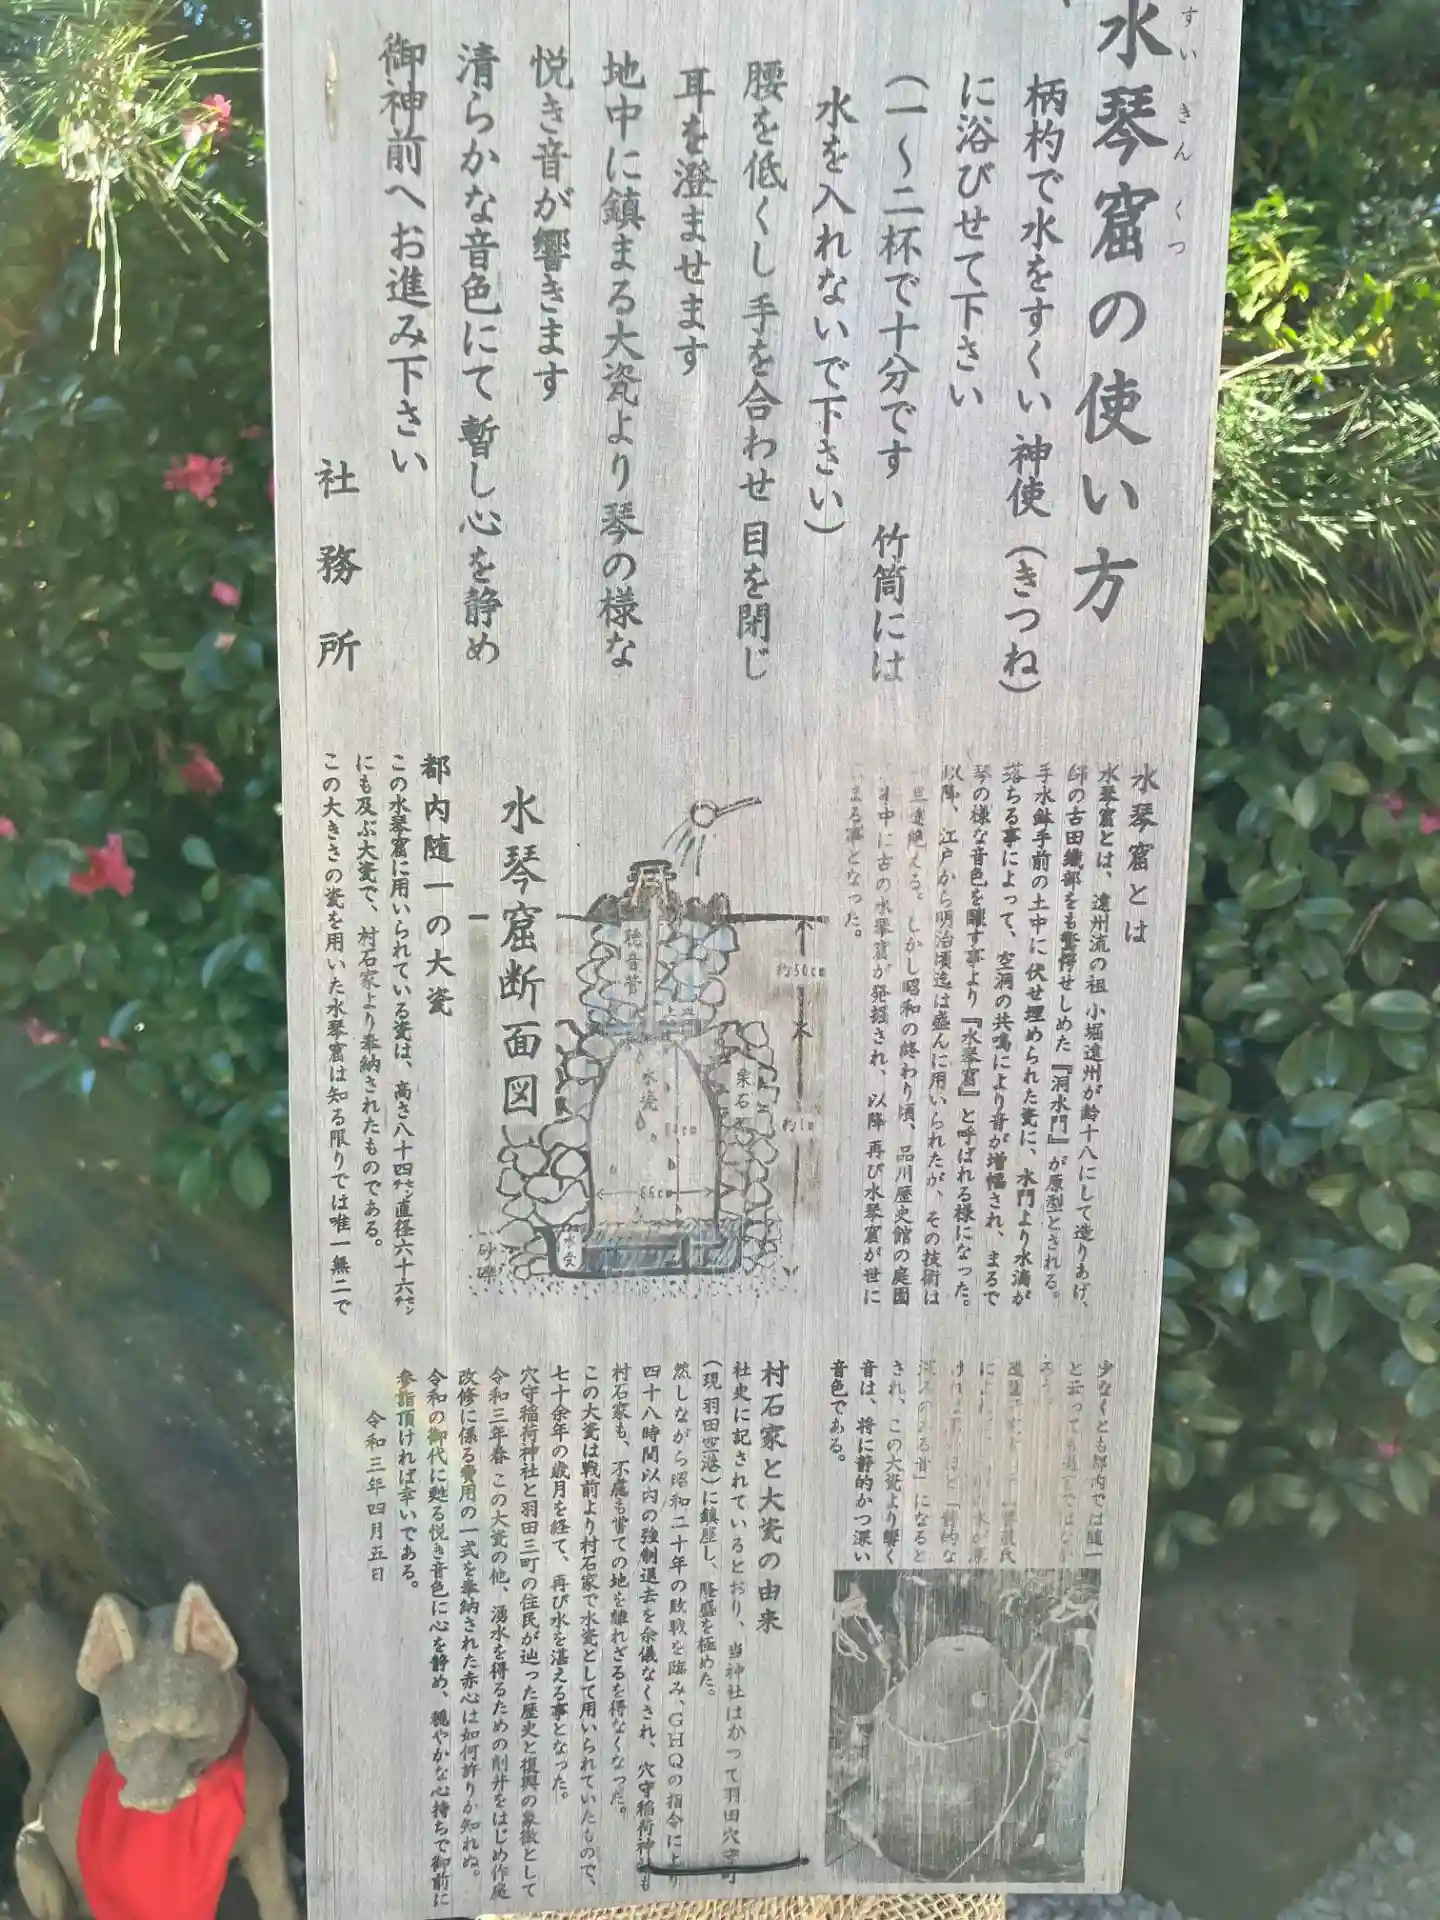 水琴窟の使い方
すいきんくつ
柄杓で水をすくい 神使(きつね)
に浴びせて下さい
(一～二杯で十分です 竹筒には
水を入れないで下さい)
腰を低くし 手を合わせ 目を閉じ
耳を澄ませます
地中に鎮まる大瓷より 琴の様な
悦き音が響きます
清らかな音色にて 暫し心を静め
御神前へお進み下さい
社務所
水琴窟とは
水琴窟とは、遠州流の祖 小堀遠州が齢十八にして造りあげ、
師の古田織部をも驚愕せしめた『洞水門』が原型とされる。
手水鉢手前の土中に伏せ埋められた瓷に、水門より水滴が
落ちる事によって、空洞の共鳴により音が増幅され、まるで
琴の様な音色を醸す事より『水琴窟』と呼ばれる様になった。
以降、江戸から明治頃迄は盛んに用いられたが、その技術は
途絶える。しかし昭和の終わり頃、品川歴史館の庭園
中に古の水琴窟が発掘され、以降 再び水琴窟が世に
まる事となった。
水琴窟断面図
聴音管
水瓷
栗石
約50cm
約1m
84cm
66cm
水受
砂礫
都内随一の大瓷
この水琴窟に用いられている瓷は、高さ八十四㌢直径六十六㌢
にも及ぶ大瓷で、村石家より奉納されたものである。
この大きさの瓷を用いた水琴窟は知る限りでは唯一無二で
少なくとも都内では随一
と云っても過言ではなか
ろう。
になると
され、この大瓷より響く
音は、将に静的かつ深い
音色である。
村石家と大瓷の由来
社史に記されているとおり、当神社はかつて羽田穴守町
(現羽田空港)に鎮座し、隆盛を極めた。
然しながら昭和二十年の敗戦を臨み、GHQの指令により
四十八時間以内の強制退去を余儀なくされ、穴守稲荷神社も
村石家も、不慮も嘗ての地を離れざるを得なくなった。
この大瓷は戦前より村石家で水瓷として用いられていたもので、
七十余年の歳月を経て、再び水を湛える事となった。
穴守稲荷神社と羽田三町の住民が辿った歴史と復興の象徴として
令和三年春 この大瓷の他、湧水を得るための削井をはじめ作庭
改修に係る費用の一式を奉納された赤心は如何許りか知れぬ。
令和の御代に甦る悦き音色に心を静め、穏やかな心持ちで御前に
参詣頂ければ幸いである。
令和三年四月五日